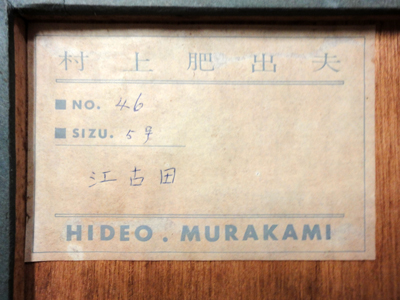 村上肥出夫
■ NO. 46
■ SIZU. 5号
江古田
HIDEO. MURAKAMI